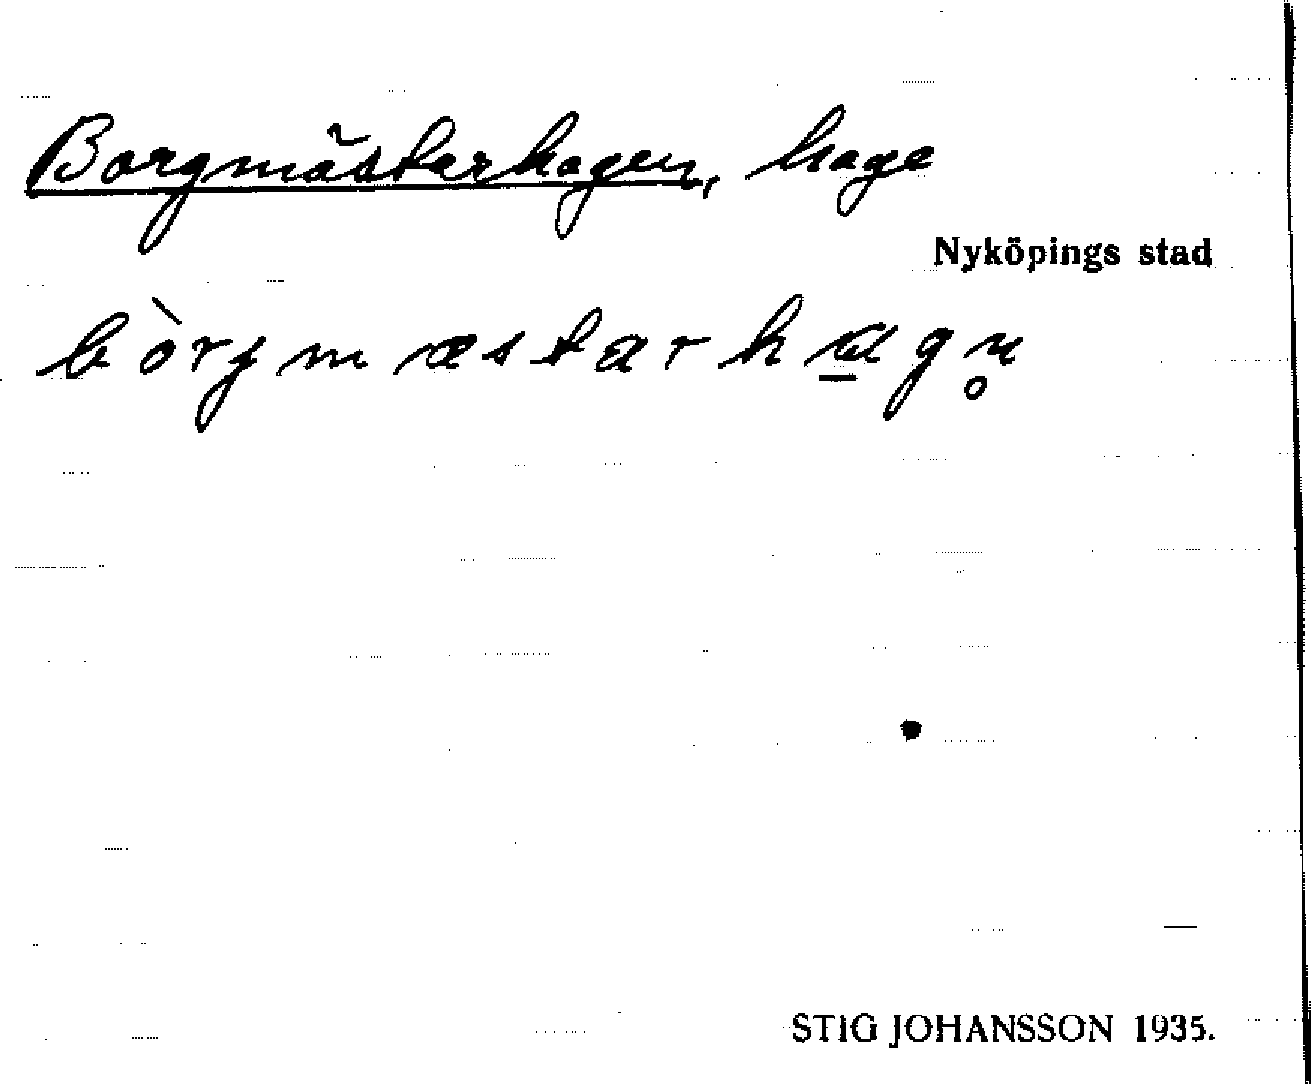 Borgmästerhagen, hage
Nyköpings stad
bòrjmæstarhа̲gn̥
STIG JOHANSSON 1935.